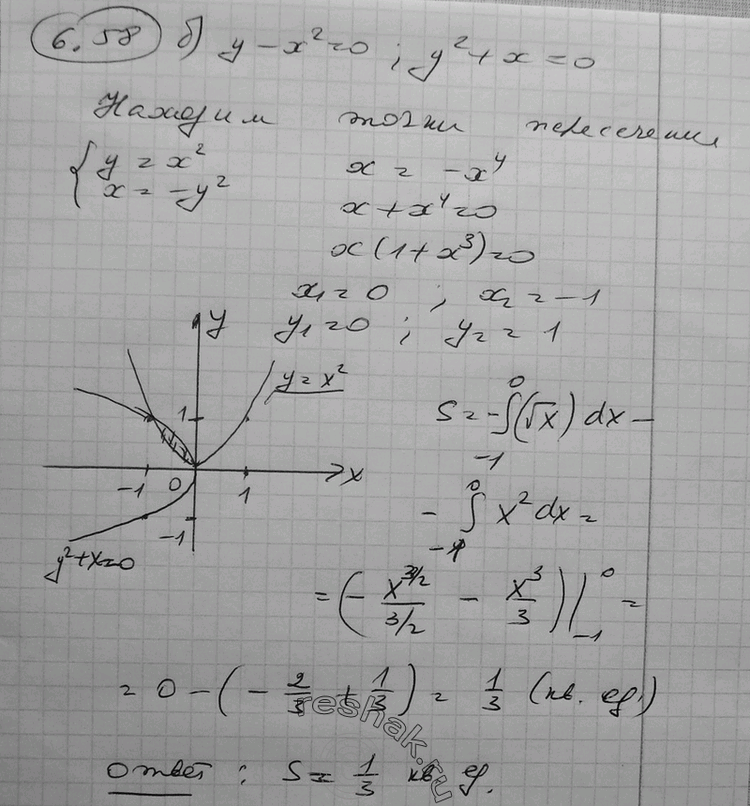 6.58 б) y - x² = 0 ; y² + x = 0
Находим точки пересечения
{ y = x²
x = -y²
x = -x⁴
x + x⁴ = 0
x(1 + x³) = 0
x₁ = 0 ; x₂ = -1
y₁ = 0 ; y₂ = 1
y
y = x²
1
-1 0 1 x
-1
y² + x = 0
S = -∫₋₁⁰(√x) dx -
- ∫₋₁⁰ x² dx =
= (- x^(3/2)/(3/2) - x³/3)|₋₁⁰ =
= 0 - (- 2/3 + 1/3) = 1/3 (кв. ед.)
reshak.ru
Ответ : S = 1/3 кв ед.